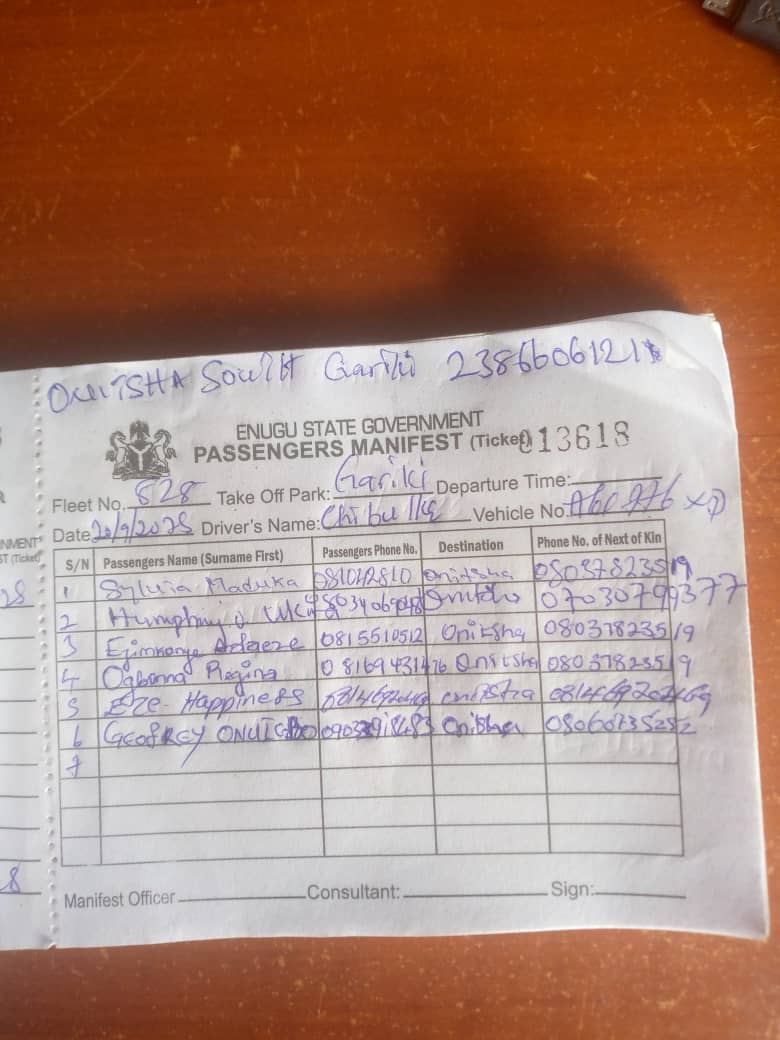 ONITSHA South Gariki 2386606121
ENUGU STATE GOVERNMENT
PASSENGERS MANIFEST (Ticket) 013618
Fleet No. 828 Take Off Park: Gariki Departure Time:
Date 20/9/2025 Driver's Name: Vehicle No.
S/N Passengers Name (Surname First) Passengers Phone No. Destination Phone No. of Next of Kin
1 Sylvia Maduka 081042810 Onitsha 08037823519
2 07030799377
3 Adaeze 0815510512 Onitsha 08037823519
4 Ogbonna Regina 08169431476 Onitsha 08037823519
5 Eze Happiness
6 GEOFREY Onitsha 08060735252
7
Manifest Officer Consultant: Sign:
NMENT
ST (Ticket)
28
8